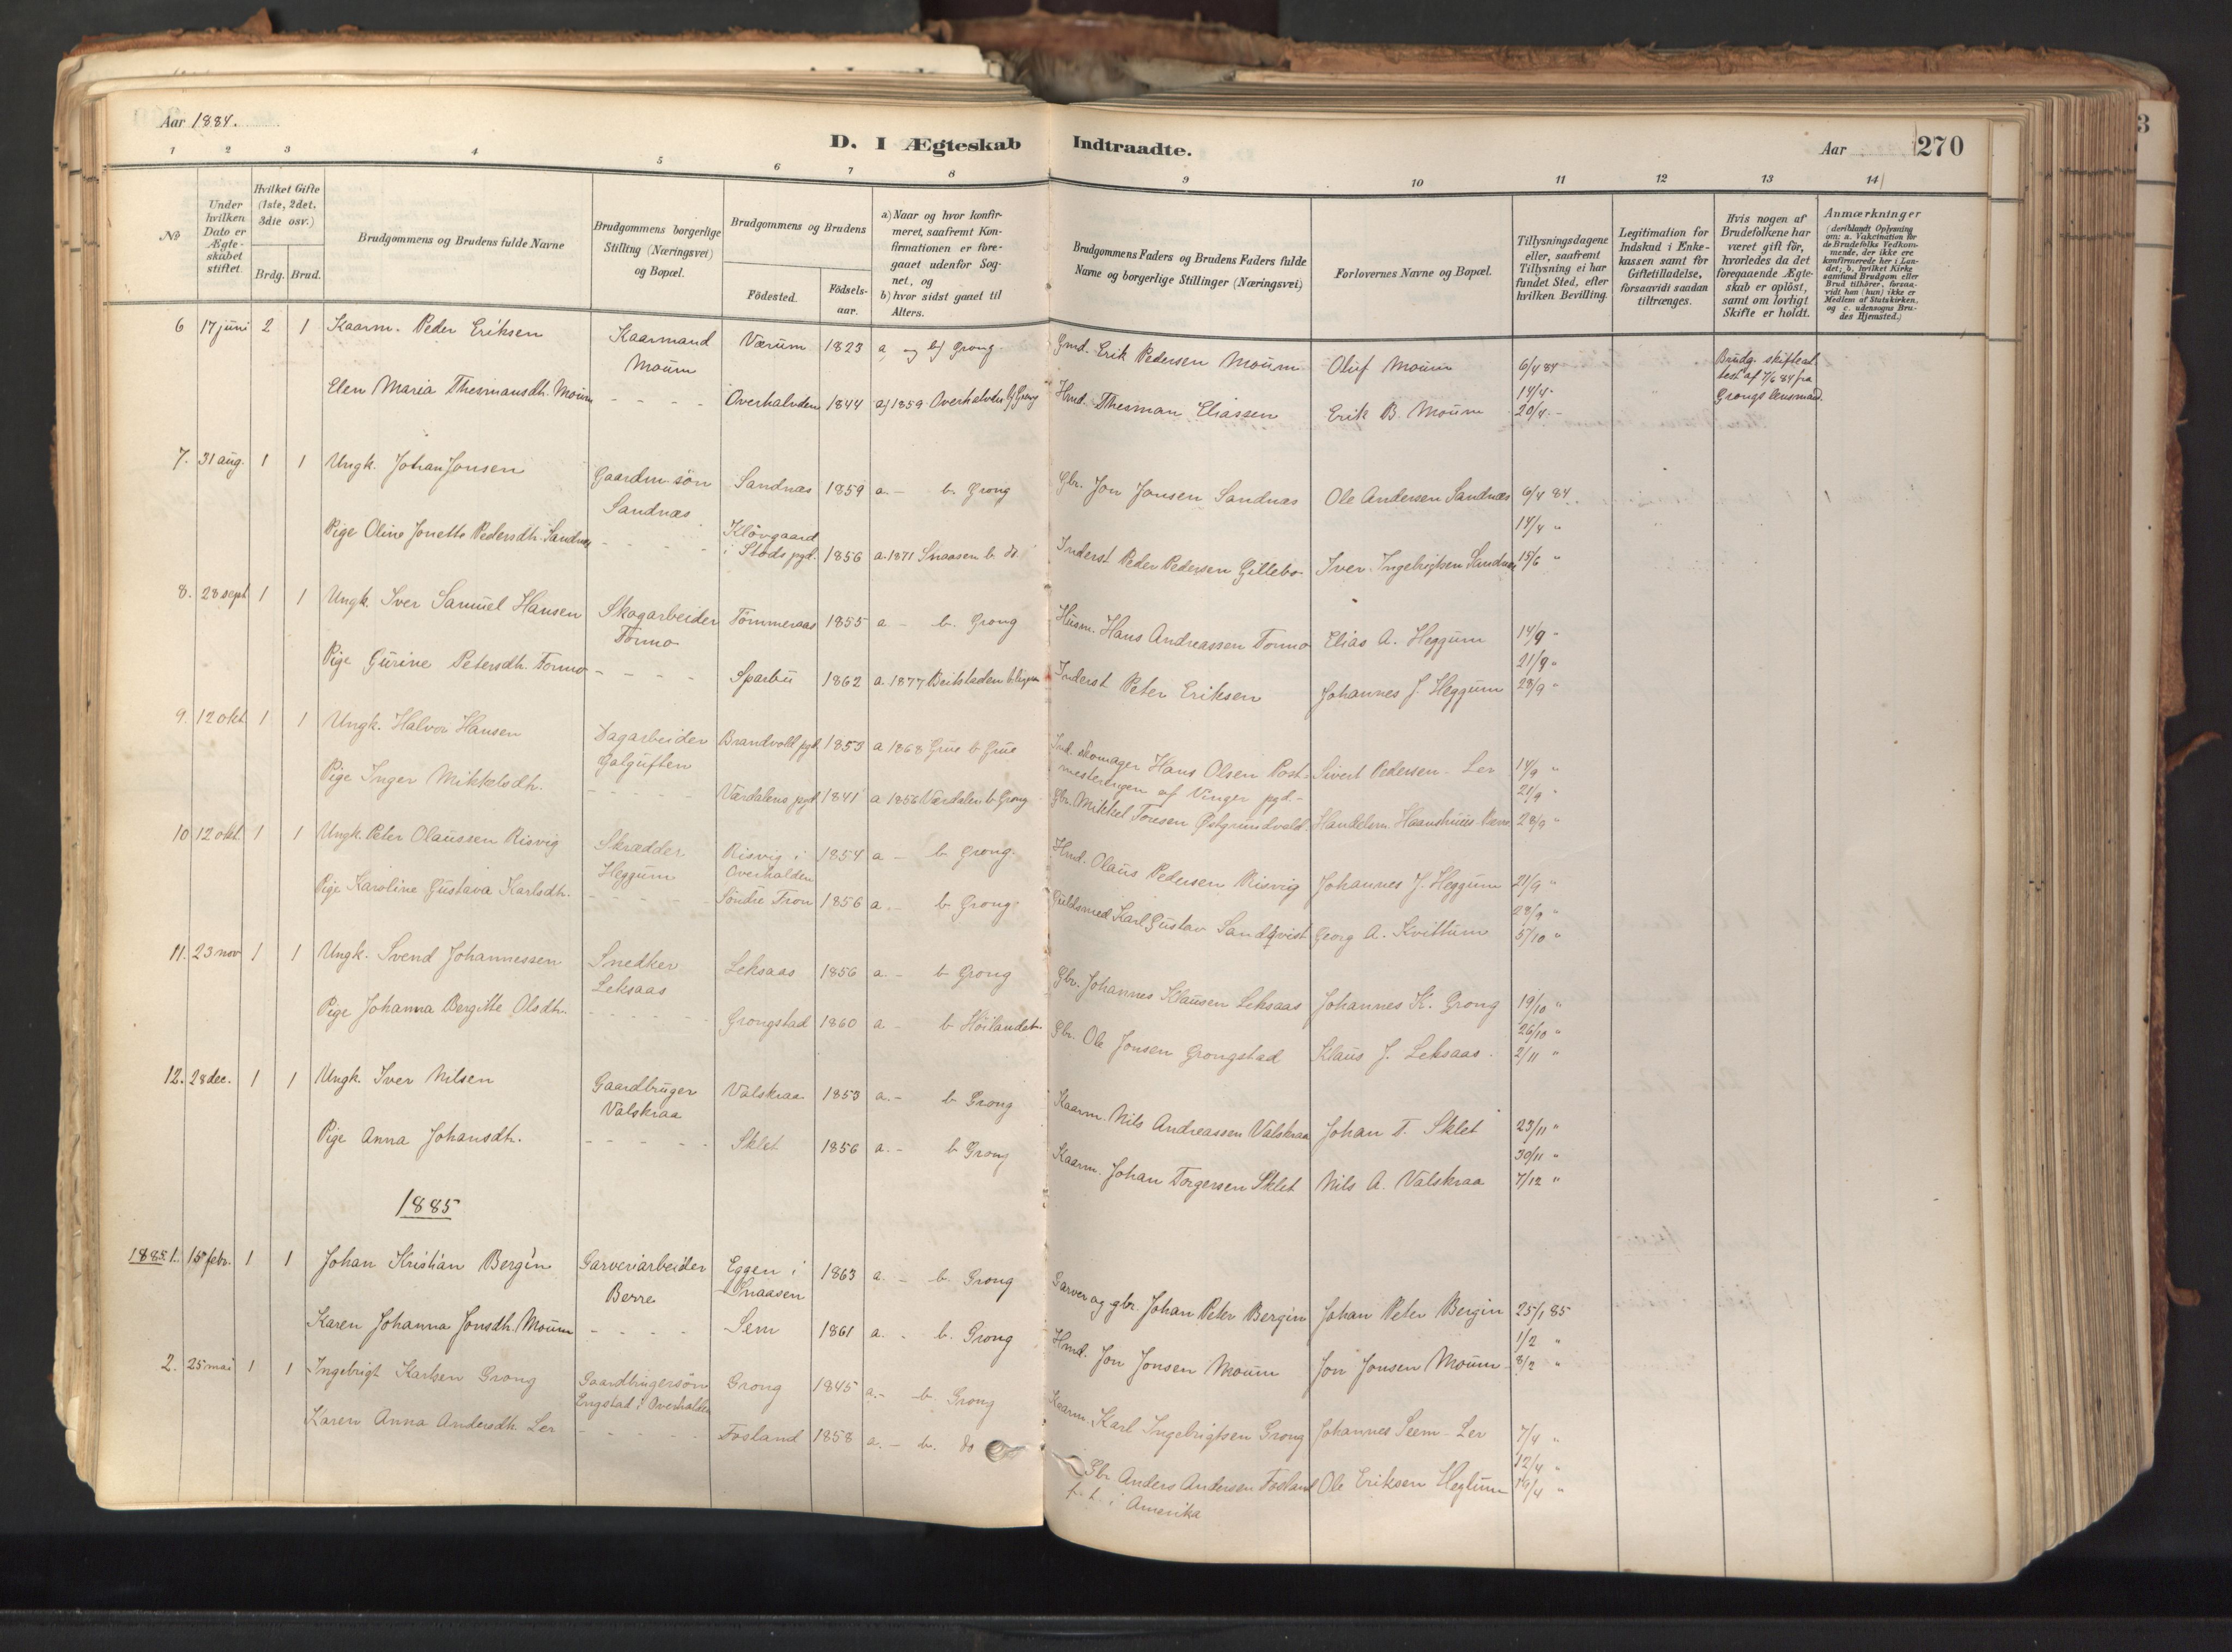 Aar 1884.
D. I Ægteskab Indtraadte.
Aar 270
1 2 3 4 5 6 7 8 9 10 11 12 13 14
No
Under hvilken Dato er Ægteskabet stiftet.
Hvilket Gifte (1ste, 2det, 3die osv.)
Brdg. Brud.
Brudgommens og Brudens fulde Navne
Brudgommens borgerlige Stilling (Næringsvei) og Bopæl.
Brudgommens og Brudens
Födested.
Födsels-aar.
a) Naar og hvor konfirmeret, saafremt Konfirmationen er foregaaet udenfor Sognet, og
b) hvor sidst gaaet til Alters.
Brudgommens Faders og Brudens Faders fulde Navne og borgerlige Stillinger (Næringsvei)
Forlovernes Navne og Bopæl.
Tillysningsdagene eller, saafremt Tillysning ei har fundet Sted, efter hvilken Bevilling.
Legitimation for Indskud i Enkekassen samt for Giftetilladelse, forsaavidt saadan tiltrænges.
Hvis nogen af Brudefolkene har været gift för, hvorledes da det foregaaende Ægteskab er oplöst, samt om lovligt Skifte er holdt.
Anmærkninger (deriblandt Oplysning om: a. Vakcination for de Brudefolks Vedkommende, der ikke ere konfirmerede her i Landet; b. hvilket Kirkesamfund Brudgom eller Brud tilhörer, forsaavidt han (hun) ikke er Medlem af Statskirken, og c. udensogns Brudes Hjemsted.)
6 17 juni 2 1 Kaarm. Peder Eriksen Kaarmand Moum Værum 1823 a, og b) Grong. Gmd. Erik Pedersen Moum Oluf Moum 6/4 84 Brudg. skifteattest af 7/6 84 fra Grongs lensmand.
Elen Maria Thesmansdh. Moum - - - - Overhalvden 1844 a) 1859 Overhalvden b) Grong Hmd. Thesman Eliassen Erik B. Moum 14/4 20/4
7. 31 aug. 1 1 Ungk. Johan Jonsen Gaardm. søn Sandnæs Sandnæs 1859 a. - b. Grong Gbr. Jon Jonsen Sandnæs Ole Andersen Sandnæs 6/4 84
14/4 "
Pige Oline Jonette Pedersdh. Sandnæs - - - Klövgaard i Stods pgd. 1856 a. 1871 Snaasen b. do Inderst Peder Pedersen Gillebo Iver Ingebrigtsen Sandnæs 15/6 "
8. 28 sept 1 1 Ungk. Iver Samuel Hansen Skogarbeider Formo Tömmeraas 1855 a - b. Grong Husm. Hans Andreassen Formo Elias A. Heggum 14/9 "
21/9 "
Pige Gurine Petersdh. Formo - - - - Sparbu 1862 a. 1877 Beitstaden Inderst Peter Eriksen Johannes J. Heggum 28/9 "
9. 12 okt 1 1 Ungk. Halvor Hansen Dagarbeider Galguften Brandvold pgd. 1853 a 1868 Grue b Grue Ind. skomager Hans Olsen Postmesterengen af Vinger pgd. Sivert Pedersen - Ler 14/9 "
21/9 "
Pige Inger Mikkelsdh. - - - - - Værdalens pgd 1841 a 1856 Værdalen b Grong Gbr. Mikkel Toresen Østgrundvald Handelsm. 28/9 "
10 12 okt. 1 1 Ungk. Peter Olaussen Risvig Skrædder Heggum Risvig i Overhalden 1854 a - b Grong. Hmd. Olaus Pedersen Risvig Johannes J. Heggum 21/9 "
28/9 "
Pige Karoline Gustava Karlsdh. - - - - - Söndre Tron 1856 a. - b Grong Guldsmed Karl Gustav Sandqvist Georg A. Kvittum 5/10 "
11. 23 nov 1 1 Ungk. Svend Johannessen Snedker Leksaas Leksaas 1856 a. - b Grong Gbr. Johannes Klausen Leksaas Johannes K. Grong 19/10 "
26/10 "
Pige Johanna Bergitte Olsdh. - - - - - Grongstad 1860 a. - b Höilandet Gbr. Ole Jonsen Grongstad Klaus J. Leksaas. 2/11 "
12. 28 dec. 1 1 Ungk. Iver Nilsen Gaardbruger Valskraa Valskraa 1853 a. - b Grong Kaarm. Nils Andreassen Valskraa Johan T. Sklet 23/11 "
30/11 "
Pige Anna Johansdh. - - - - - Sklet 1856 a. - b Grong Kaarm. Johan Torgersen Sklet Nils A. Valskraa 7/12 "
1885
1885 1. 15 febr. 1 1 Johan Kristian Bergin Garveriarbeider Berre Eggen i Snaasen 1863 a. - b. Grong Garver og gbr. Johan Peter Bergin Johan Peter Bergin 25/1 85
1/2 "
Karen Johanna Jonsdh. Moum - - - - Sem 1861 a. - b. Grong Hmd. Jon Jonsen Moum Jon Jonsen Moum 8/2 "
2. 25 mai 1 1 Ingebrigt Karlsen Grong Gaardbrugersøn Engstad i Overhalden Grong 1845 a. - b. Grong Kaarm. Karl Ingebrigtsen Grong Johannes Seem - Ler 7/4 "
12/4 "
Karen Anna Andersdh. Ler - - - - - Fosland 1858 a. - b. do Gbr. Anders Andersen Fosland f. t. i Amerika Ole Eriksen Heglum 19/4 "